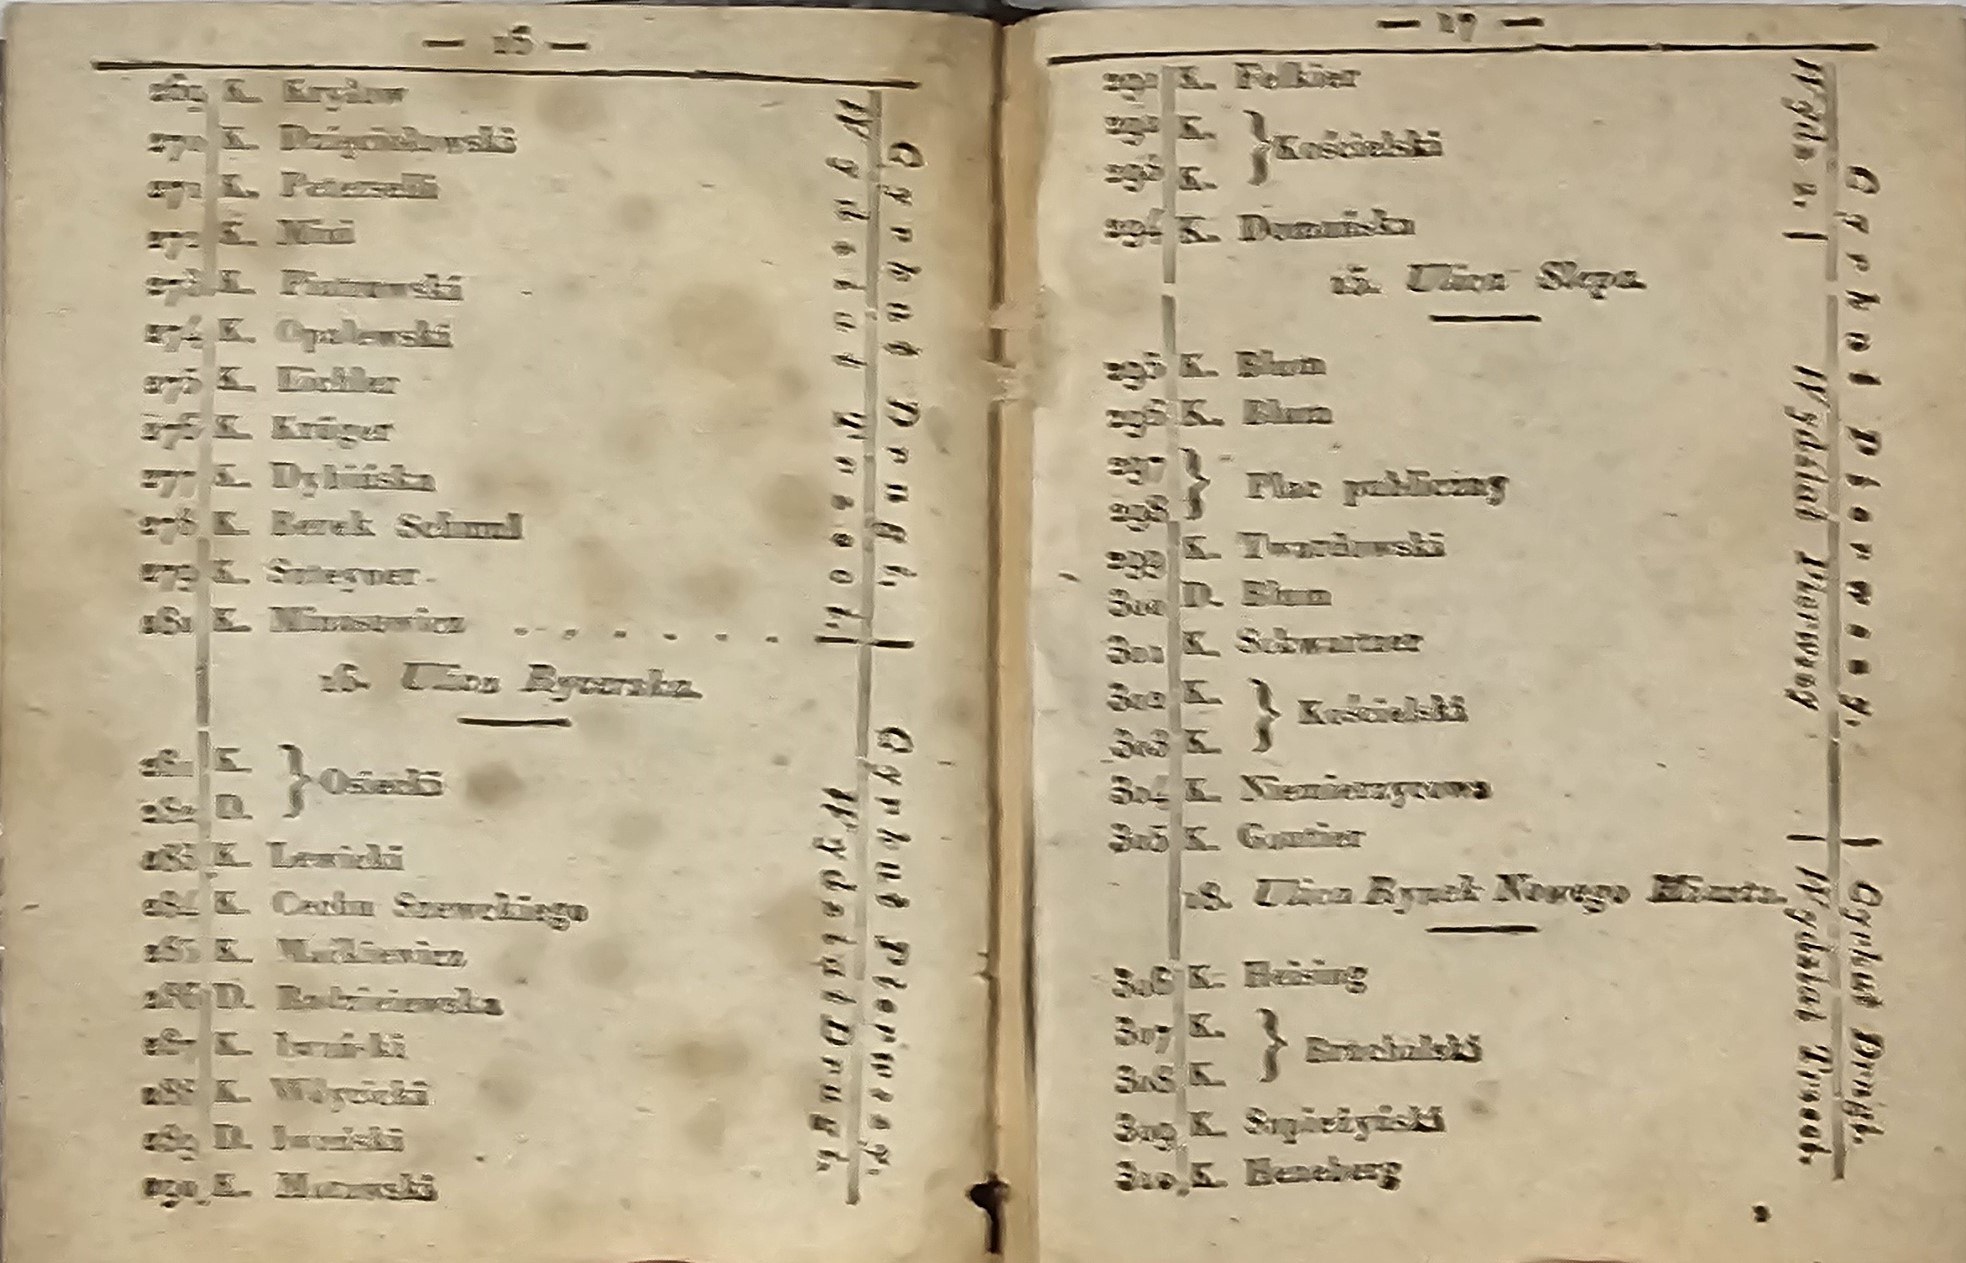 — 16 —
269 K. Kryłow
270 K.
271 K. Peterselli
272 K. Mini
273 K. Piotrowski
274 K. Opalewski
275 K. Eichler
276 K. Krüger
277 K. Dybińska
278 K. Berek Schmul
279 K.
280 K.
16. Ulica Rycerska.
281 K. } Osiecki
282 D.
283 K. Lewicki
284 K. Cechu Szewckiego
285 K. Maćkiewicz
286 D. Radziejewska
287 K. Iwański
288 K. Wóycicki
289 D. Iwański
290 K. Morawski
Wydział Trzeci.
Cyrkuł Drugi.
Wydział Drugi.
Cyrkuł Pierwszy.
— 17 —
291 K. Felkier
292 K. } Kościelski
293 K.
294 K. Domańska
Ulica Slepa.
295 K. Blum
296 K. Blum
297 } Plac publiczny
298
299 K. Twardowski
300 D. Blum
301 K. Schwartzer
302 K. } Kościelski
303 K.
304 K. Niemierzycowa
305 K. Gontier
18. Ulica Rynek Nowego Miasta.
306 K. Heising
307 K. }
308 K.
309 K. Sapieżyński
310 K. Heneberg
Wydz. 2.
Wydział Pierwszy
Cyrkuł Pierwszy.
Wydział Trzeci.
Cyrkuł Drugi.